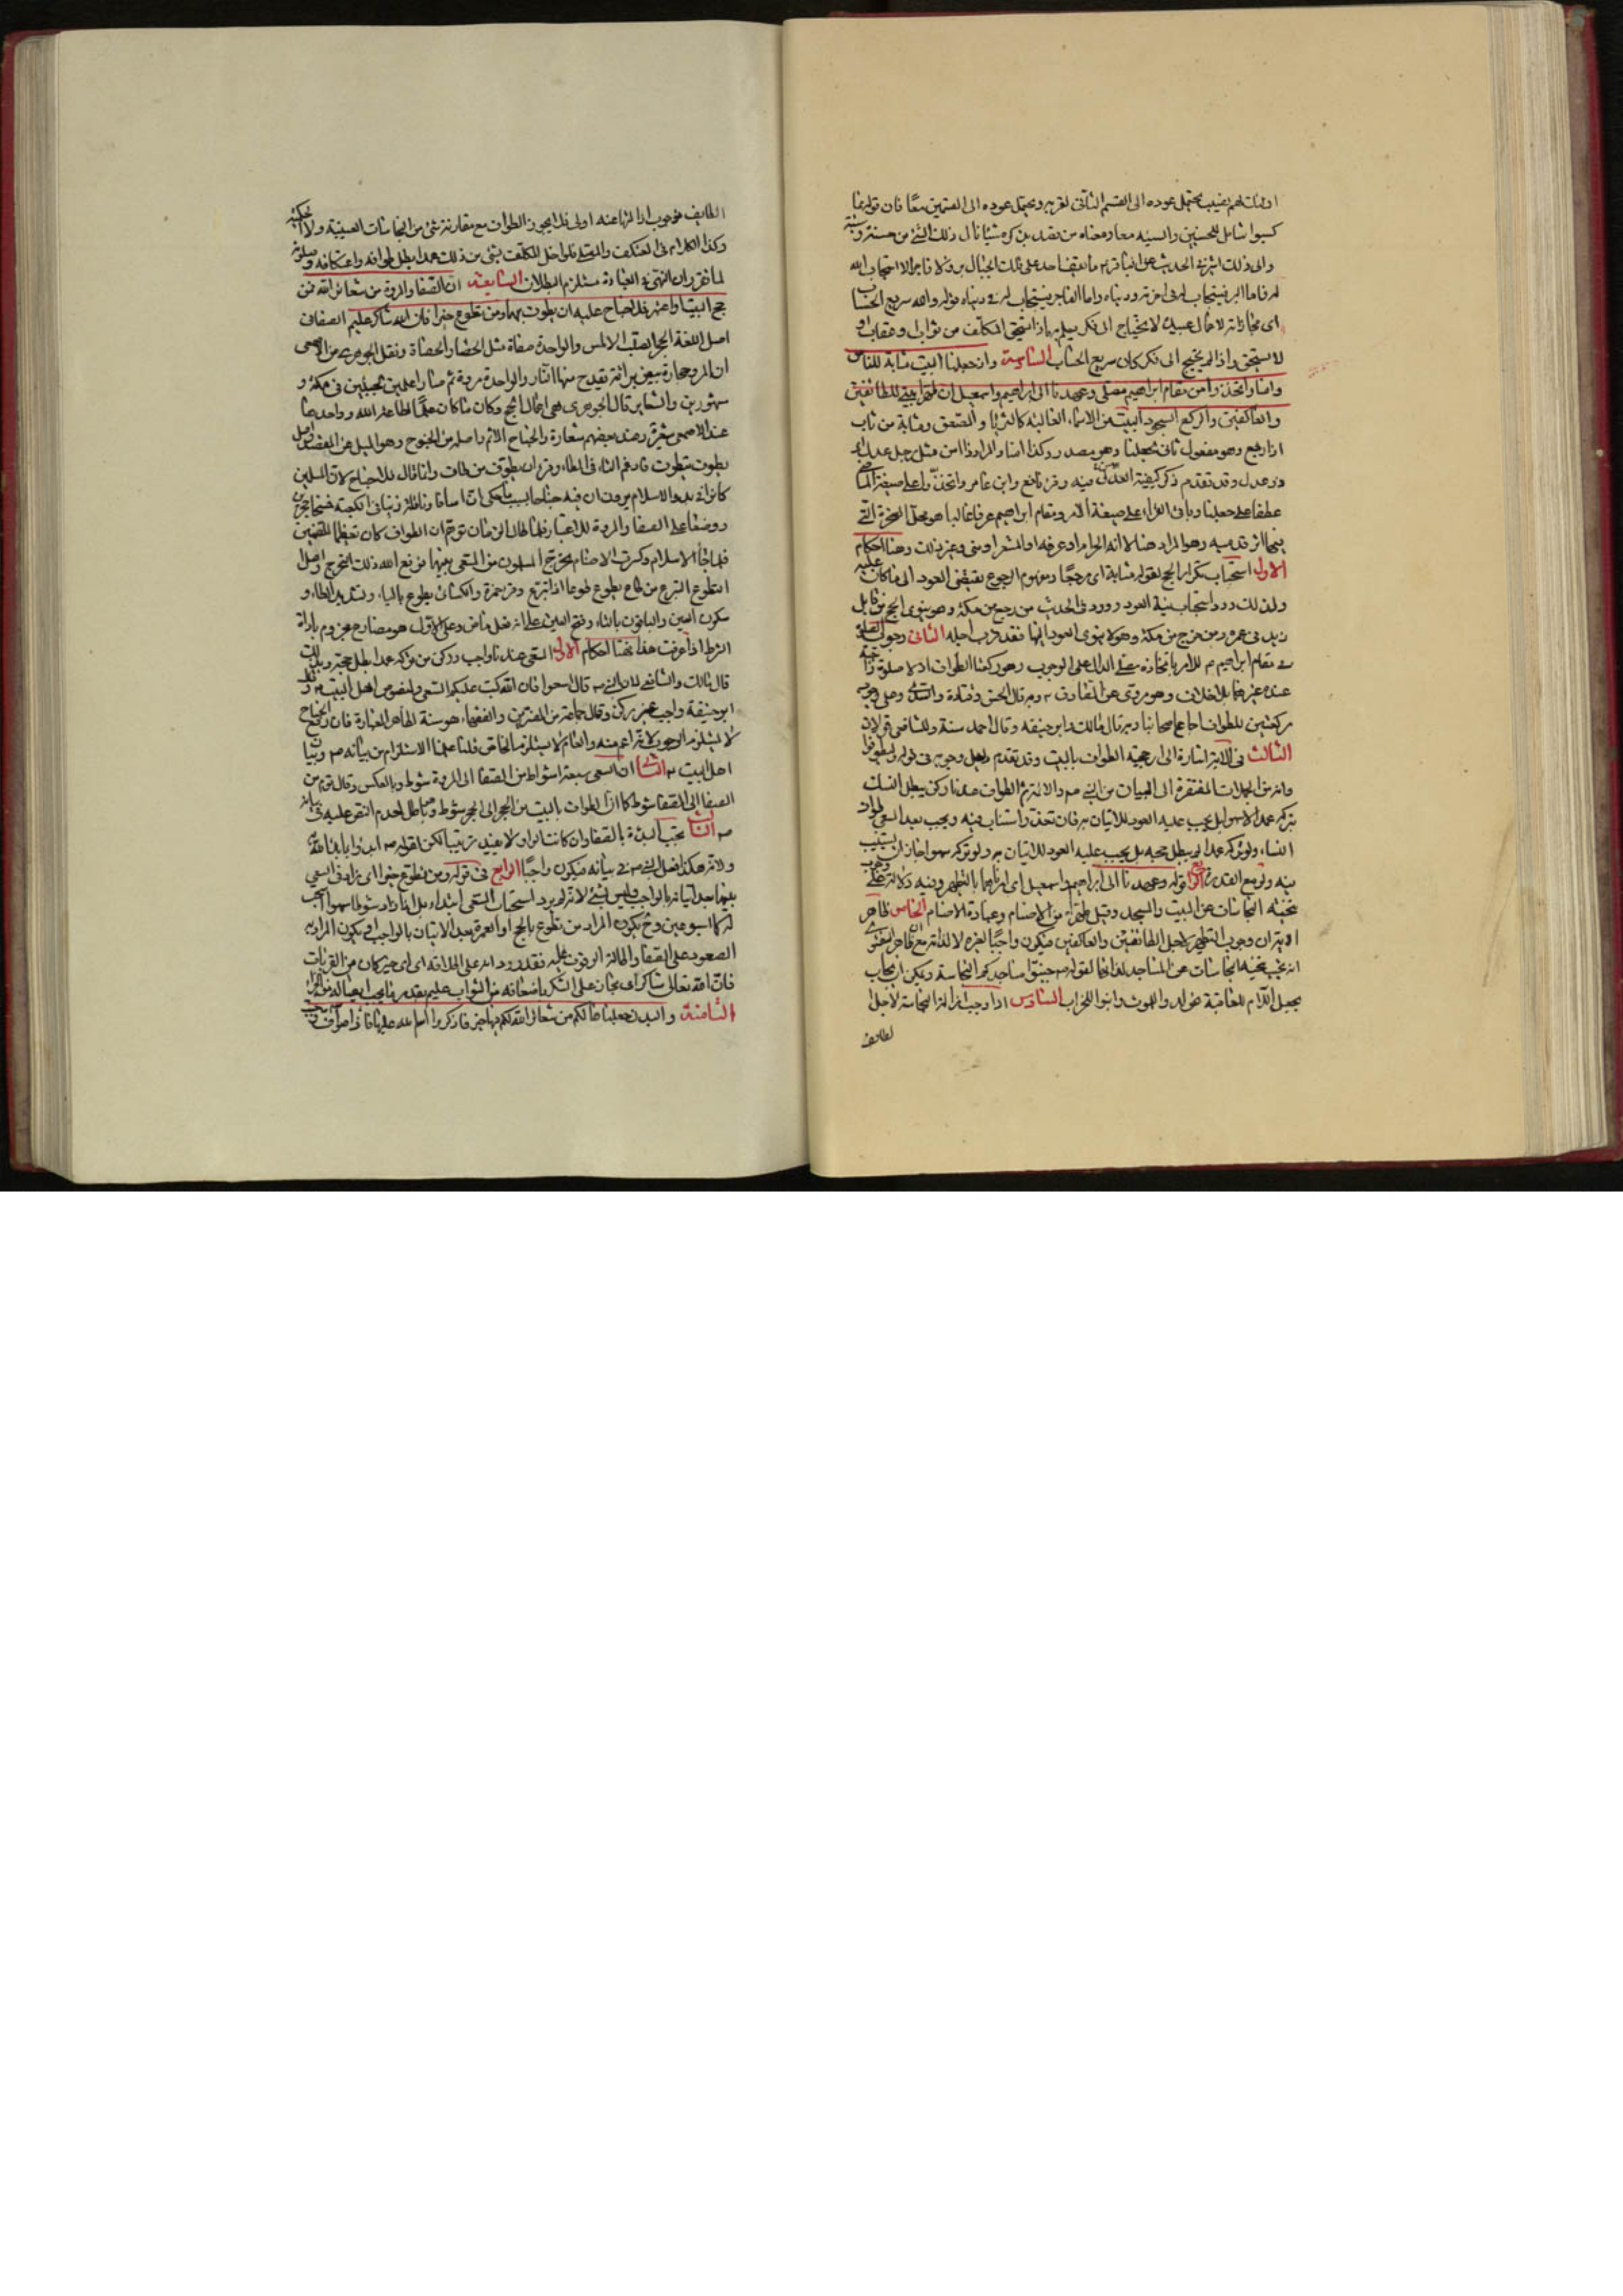 اولئك لهم نصيب يحتمل عوده الى القسم الثانى لقربه ويحتمل عوده الى القسمين معًا فان قوله مما
كسبوا شامل للحسنين والسيئه معا ومعناه من يقصد بذكره شيئا نال ذلك الشئ من حسنة وسيئة
والى ذلك اشير فى الحديث عن الباقر ما يقف احد على تلك الجبال بر ولا فاجر الا استجاب الله
له فاما البر فيستجاب له فى اخرته ودنياه واما الفاجر فيستجاب له فى دنياه قوله والله سريع الحساب
اى مجازاته لاعمال عبيده لا يحتاج الى فكر يعلم به ماذا استحق المكلف من ثواب وعقاب او
لا يستحق واذا لم يحتج الى فكر كان سريع الحساب السادسة واذ جعلنا البيت مثابة للناس
وامنا واتخذوا من مقام ابراهيم مصلى وعهدنا الى ابراهيم واسمعيل ان طهرا بيتى للطائفين
والعاكفين والركع السجود البيت من الاسماء الغالبة كالثريا والصعق ومثابة من ثاب
اذا رجع وهو مفعول ثانى لجعلنا وهو مصدر وكذا امنا والمراد ذا امن مثل رجل عدل اى
ذو عدل وقد تقدم ذكر كيفية العدل فيه وقرء نافع وابن عامر واتخذوا على صيغة الماضى
عطفا على جعلنا وباقى القراء على صيغة الامر ومقام ابراهيم عرفا غالبا هو محل الصخرة التى
فيها اثر قدميه وهو المراد هنا لا انه الحرام او عرفه او المشعر او منى وغير ذلك وهنا احكام
الاول استحباب تكرار الحج لقوله مثابة اى مرجعًا ومفهوم الرجوع يقتضى العود الى ما كان عليه
ولذلك ورد استحباب نية العود وورد فى الحديث من رجع من مكة وهو ينوى الحج من قابل
زيد فى عمره ومن خرج من مكة وهو لا ينوى العود اليها فقد قرب اجله الثانى وجوب الصلوة
فى مقام ابراهيم للامر باتخاذه مصلى الدال على الوجوب وهو ركعتا الطواف اذ لا صلوة واجبة
عنده غيرهما بلا خلاف وهو مروى عن الصادق وبه قال الحسن وقتادة والسدى وعلى وجوب
ركعتين للطواف اجماع اصحابنا وبه قال مالك وابو حنيفه وقال احمد سنة وللشافعى قولان
الثالث فى الاية اشارة الى ارجحية الطواف بالبيت وقد تقدم دليل وجوبه فى قوله وليطوفوا
وانه من المجملات المفتقرة الى البيان من النبى صم والائمة والطواف عندنا ركن يبطل النسك
بتركه عمدا لا سهوا بل يجب عليه العود للاتيان به فان تعذر استناب فيه ويجب بعد السعى طواف
النساء ولو تركه عمدا لم يبطل حجه بل يجب عليه العود للاتيان به ولو تركه سهوا جاز ان يستنيب
فيه ولو مع القدرة الرابع قوله وعهدنا الى ابراهيم واسمعيل اى امرناهما بالتطهير وفيه دلالة على وجوب
تنحية النجاسات عن البيت والمسجد وقيل طهرا من الاصنام وعبادة الاصنام الخامس ظاهر
الاية ان وجوب التطهير لاجل الطائفين والعاكفين فيكون واجبًا لغيره لا لذاته مع ظاهر الفتوى
انه يجب تنحية النجاسات عن المساجد لذاتها لقوله جنبوا مساجدكم النجاسة ويمكن ان يجاب
بجعل اللام للعاقبة نحو لدوا للموت وابنوا للخراب السادس اذا وجب ازالة النجاسة لاجل
الطائف
الطايف فوجوب ازالتها عنه اولى فلا يجوز الطواف مع مقارنة شئ من النجاسات العينية ولا الحكمية
وكذا الكلام فى المعتكف والمصلى فلو اخل المكلف بشئ من ذلك عمدا بطل طوافه واعتكافه وصلوته
لما تقرر ان النهى فى العبادة مستلزم البطلان السابعة ان الصفا والمروة من شعائر الله فمن
حج البيت او اعتمر فلا جناح عليه ان يطوف بهما ومن تطوع خيرا فان الله شاكر عليم الصفا فى
اصل اللغة الحجر الصلب الاملس والواحدة صفاة مثل الحصا والحصاة ونقل الجوهرى عن الاصمعى
ان المرو حجارة بيض براقة يقدح منها النار والواحدة مروة ثم صارا علمين لجبلين فى مكة و
مشهورين والشعاير قال الجوهرى هى اعمال الحج وكان ما كان علما لطاعة الله وواحدها
عند الاصمعى شعيرة وعند بعضهم شعارة والجناح الاثم واصله من الجنوح وهو الميل عن القصد واصل
يطوف يتطوف فادغم التاء فى الطاء وقرء ان يطوف من طاف وانما قال فلا جناح لان المسلمين
كانوا فى بدو الاسلام يرون ان فيه جناحا بسبب ما حكى ان اسافا ونائلة زنيا فى الكعبة فمسخا حجرين
ووضعا على الصفا والمروة للاعتبار فلما طال الزمان توهم ان الطواف كان تعظيما للصنمين
فلما جاء الاسلام وكسرت الاصنام تحرج المسلمون من السعى بينهما فرفع الله ذلك التحرج واصل
التطوع التبرع من طاع يطوع طوعا اذا تبرع وقرء حمزة والكسائى يطوع بالياء وتشديد الطاء و
سكون العين والباقون بالتاء وفتح العين على انه فعل ماض وعلى الاول هو مضارع مجزوم باداة
الشرط اذا عرفت هذا فهنا احكام الاول السعى عندنا واجب وركن من تركه عمدا بطل حجه وبذلك
قال مالك والشافعى لان النبى قال اسعوا فان الله كتب عليكم السعى ولنصوص اهل البيت وقال
ابو حنيفة واجب غير ركن وقال جماعة من المفسرين والفقهاء هو سنة لظاهر العبارة فان رفع الجناح
لا يستلزم الوجوب لانه اعم منه والعام لا يستلزم الخاص قلنا علمنا الاستلزام من بيانه وبيان
اهل البيت الثانى ان السعى سبعة اشواط من الصفا الى المروة شوط وبالعكس وقال قوم من
الصفا الى الصفا شوط كما ان الطواف بالبيت من الحجر الى الحجر شوط وهو باطل لعدم النص عليه فى بيانه
الثالث يجب البدءة بالصفا وان كانت الواو لا يفيد ترتيبا لكن لقوله ابدؤا بما بدء الله
ولانه هكذا فعل النبى فى بيانه فيكون واجبًا الرابع فى قوله ومن تطوع خيرا اى زاد فى السعى
بينهما بعد اتيانه بالواجب وليس بشئ لانه لم يرد استحباب السعى ابتداء بل اذا زاد شوطا سهوا استحب
له كما اسبوعين وح يكون المراد من تطوع بالحج او العمرة بعد الاتيان بالواجب او يكون المراد به
الصعود على الصفا واطالة الوقوف عليه فقد ورد او على اطلاقه اى اى خير كان من القربات
فان الله تعالى شاكر اى مجاز على الشكر باضعافه من الثواب عليم بقدر ما يجب ايصاله من الجزاء
الثامنة والبدن جعلناها لكم من شعائر الله لكم فيها خير فاذكروا اسم الله عليها صواف